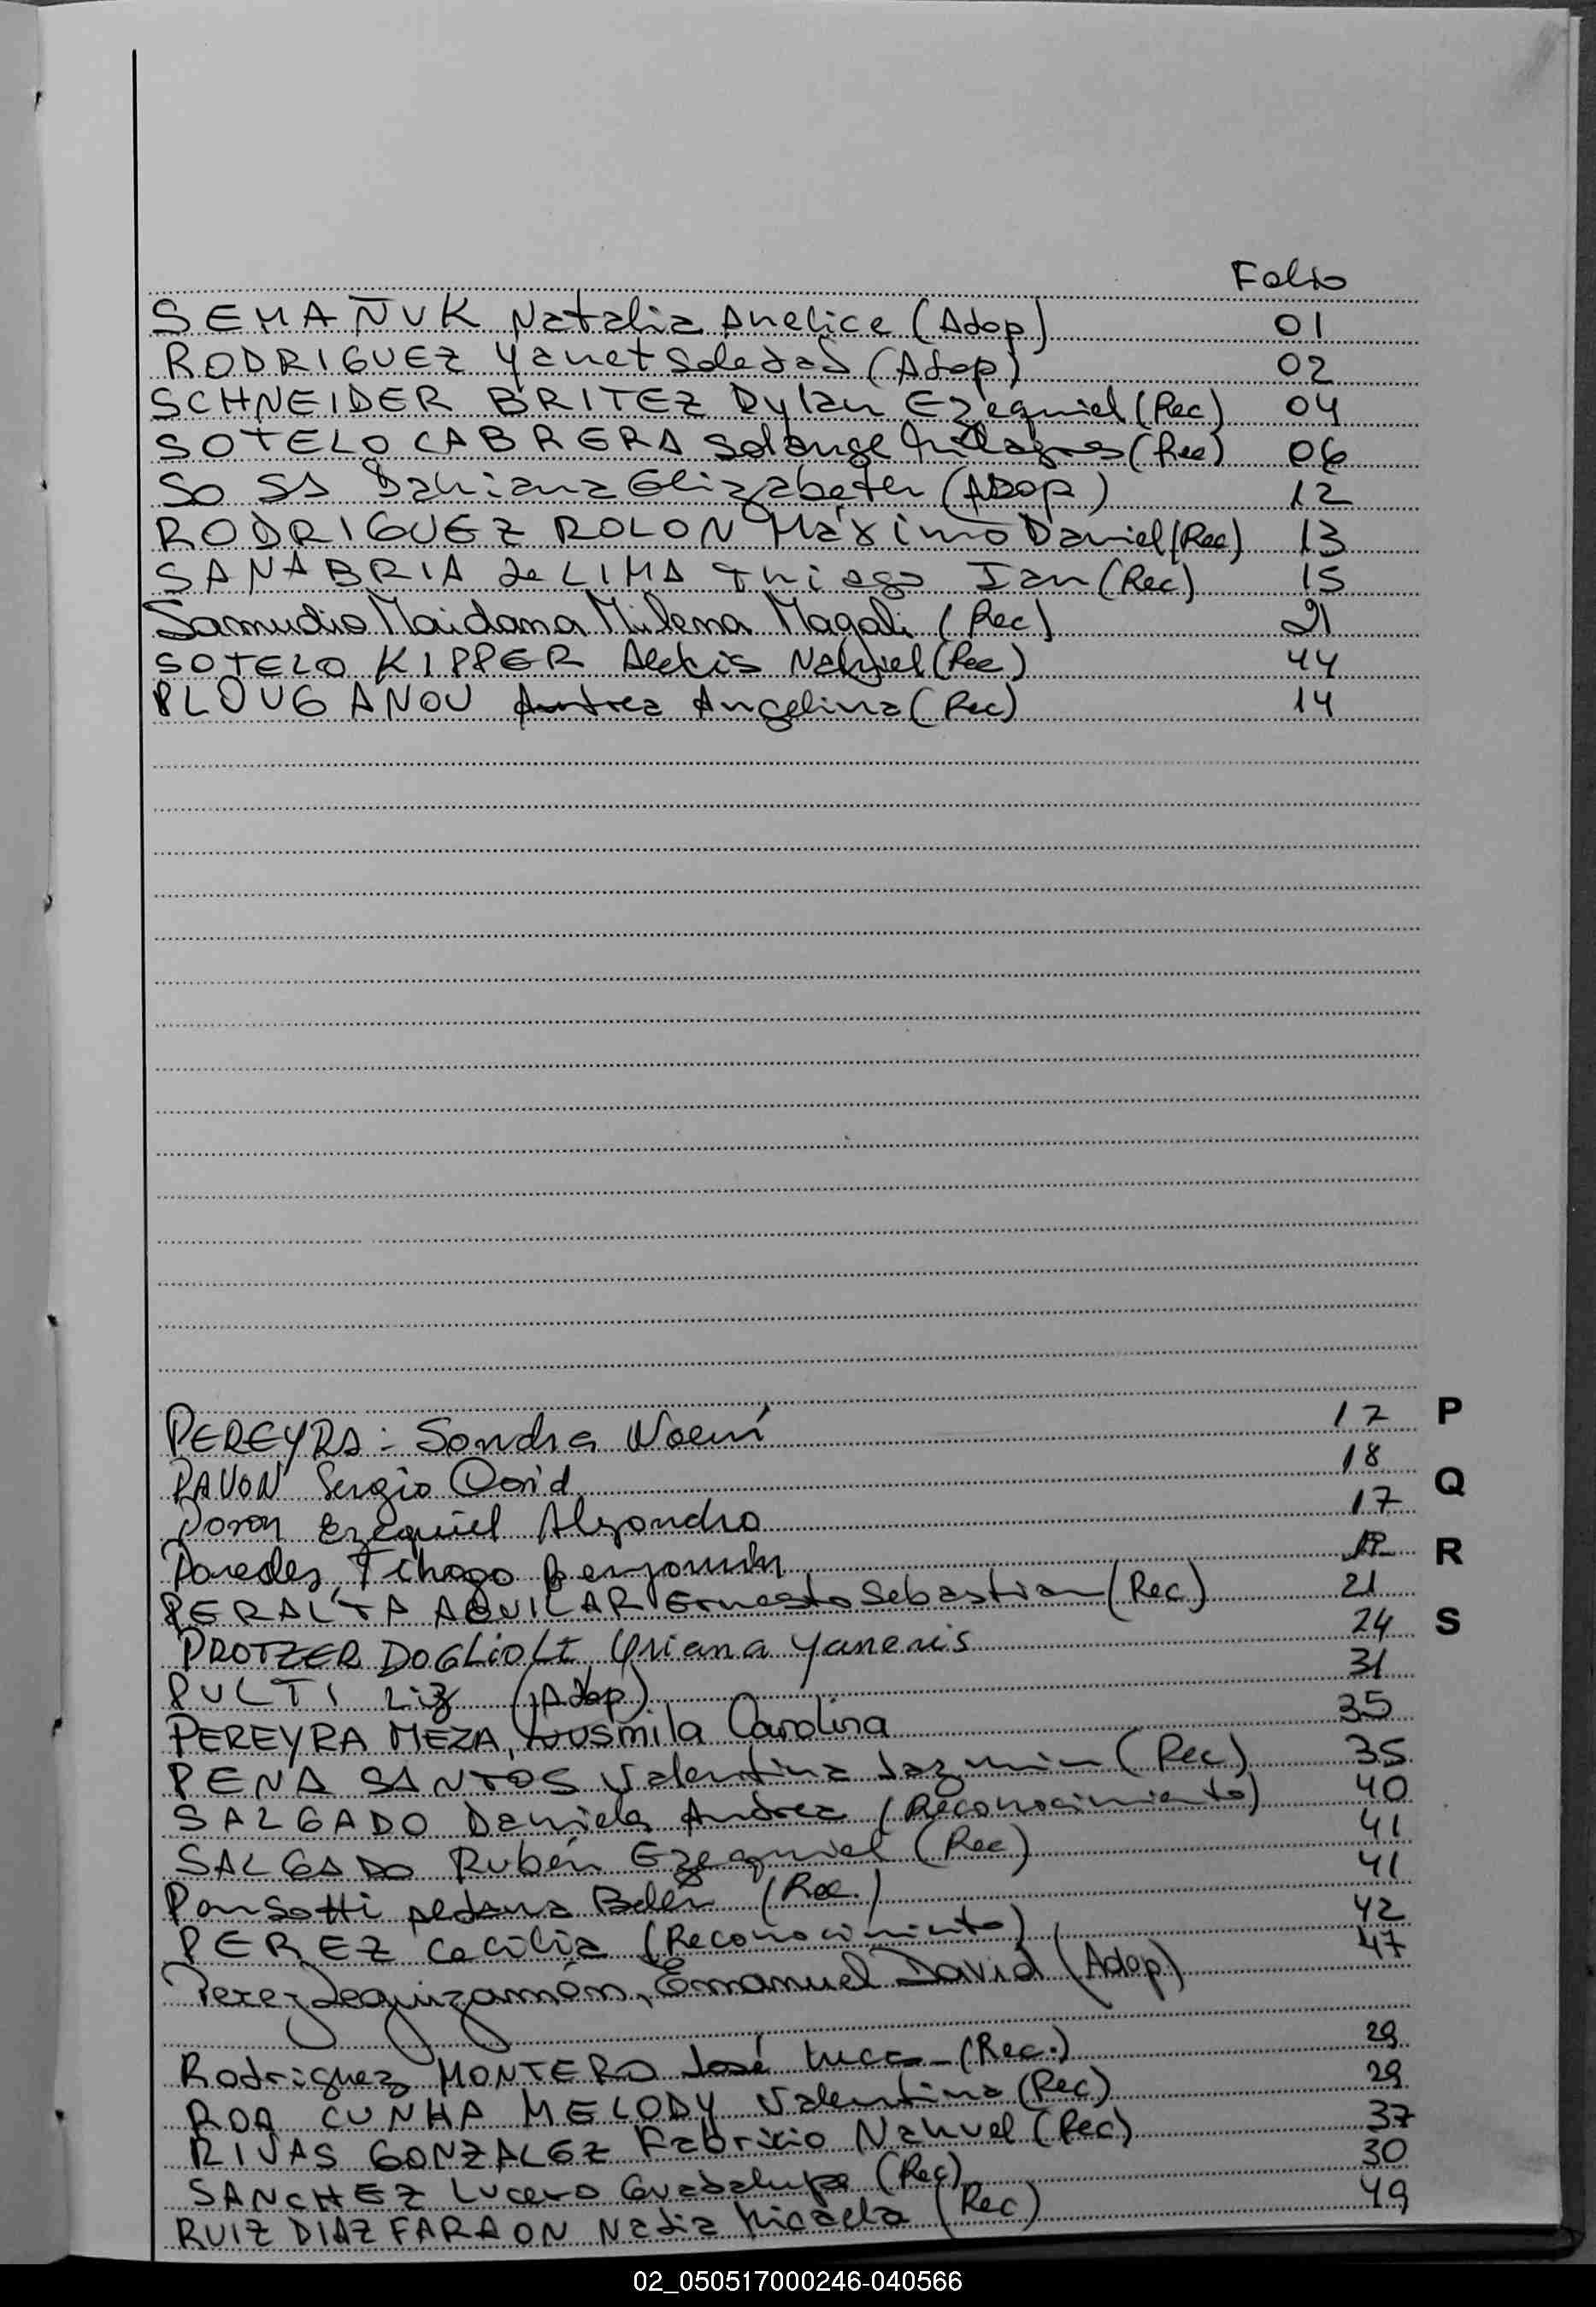 Folio
SEMAÑUK Natalia Anelice (Adop) 01
RODRIGUEZ Yanet Soledad (Adop) 02
SCHNEIDER BRITEZ Dylan Ezequiel (Rec) 04
SOTELO CABRERA Solange Milagros (Rec) 06
SOSA Dahiana Elizabeth (ADOP) 12
RODRIGUEZ ROLON Máximo Daniel (Rec) 13
SANABRIA de LIMA Thiago Ian (Rec) 15
Samudio Maidana Milena Magali (Rec) 21
SOTELO KIPPER Alexis Nahuel (Rec) 44
PLOUGANOU Angelina (Rec) 14
PEREYRA: Sandra Noemí 17 P
PAVON Sergio David 18 Q
Ezequiel Alejandro 17
Paredes, Thiago Benjamin R
PERALTA AQUILAR Ernesto Sebastian (Rec) 21
PROTZER DOGLIOLI Oriana Yanenis 24 S
PULTI Liz (Adop) 31
PEREYRA MEZA, Lusmila Carolina 35
PENA SANTOS Valentina Jazmin (Rec) 35
SALGADO Daniela Andrea (Reconocimiento) 40
SALGADO Rubén Ezequiel (Rec) 41
Ponsotti Aldana Belen (Rec.) 41
PEREZ Cecilia (Reconocimiento) 42
Perez Leguizamón, Emanuel David (Adop) 47
Rodriguez MONTERO José Luca (Rec.) 29
ROA CUNHA MELODY Valentina (Rec) 29
RIVAS GONZALEZ Fabricio Nahuel (Rec) 37
SANCHEZ Lucero Guadalupe (Rec) 30
RUIZ DIAZ FARAON Nadia Micaela (Rec) 49
02_050517000246-040566